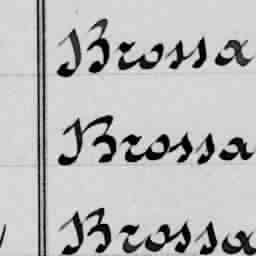 Brossa
Brossa
Brossa